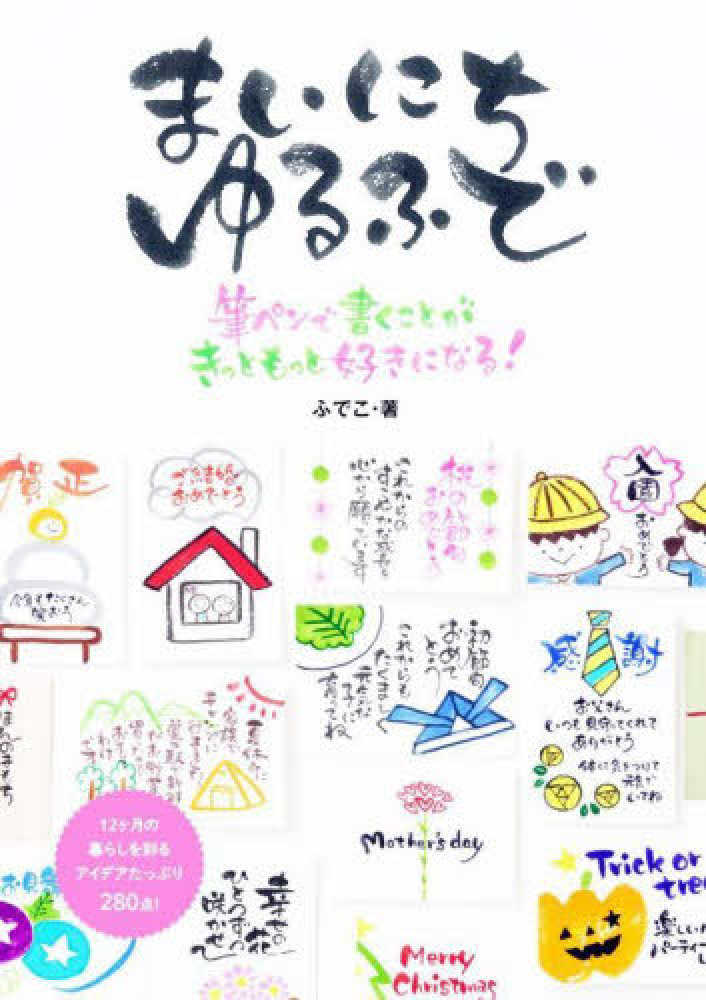 まいにち
ゆるふで
筆ペンで書くことが
きっともっと好きになる!
ふでこ・著
賀正
今年もたくさん
笑おう
ご結婚
おめでとう
桃の節句
おめでとう
これからの
すこやかな成長を
心から願っています
入園
おめでとう
初節句
おめで
とう
これからも
たくましく
元気な
子に
育ってね
感謝
お父さん
いつも見守ってくれて
ありがとう
体に気をつけて
元気で
いてね
Mother's day
12ヶ月の
暮らしを彩る
アイデアたっぷり
280点!
幸せの
花
ひとつずつ
咲かせて
Trick or
treat
楽しい
パーティー
Merry
Christmas